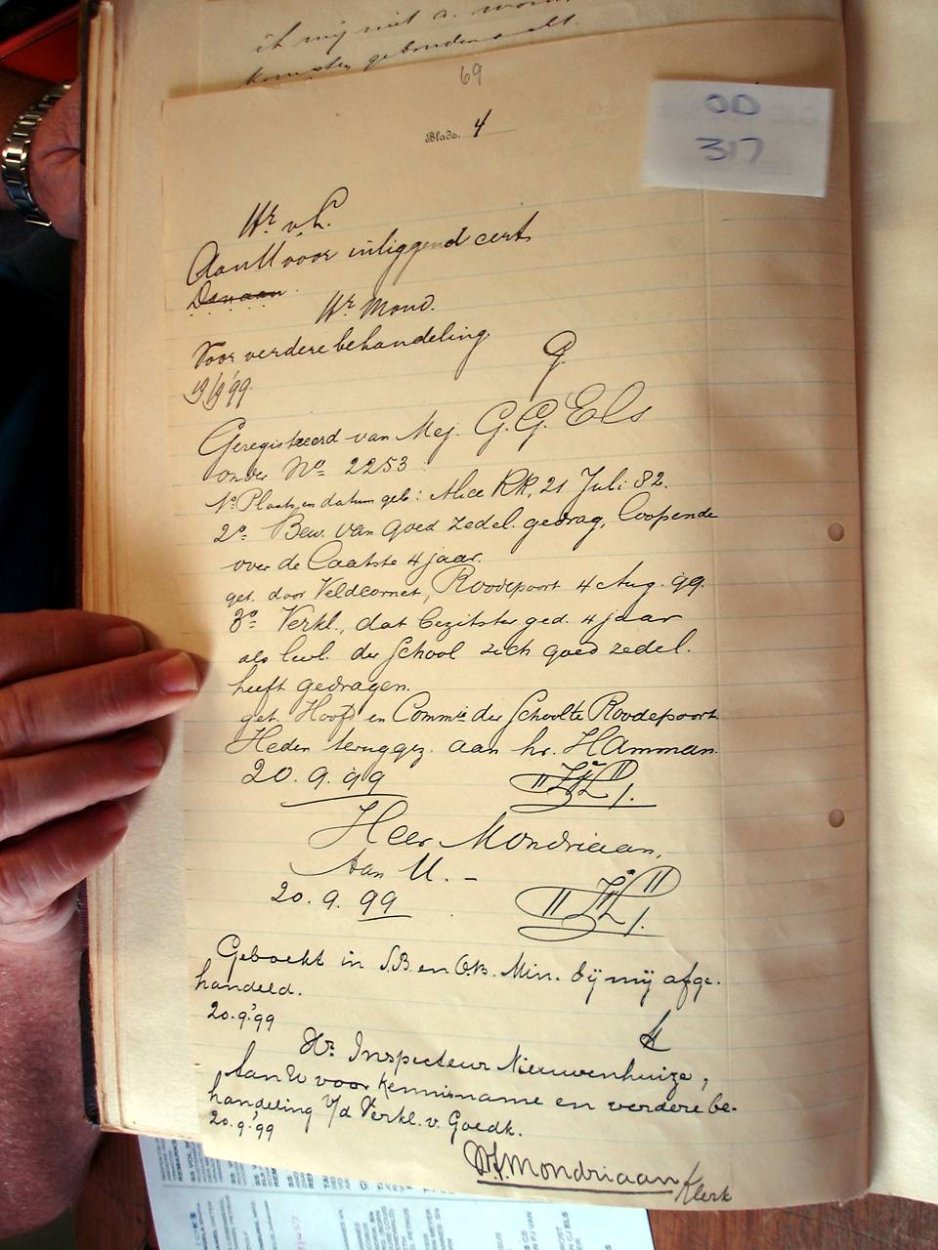 ik mij niet a.
komsten gebonden
69
Blads. 4
OD
317
Hr. v. L.
Aan U voor inliggend cert
Hr. Mond.
Voor verdere behandeling
G
19/9/'99.
Geregistreerd van Mej. G. G. Els
onder No. 2253.
1o. Plaats en datum geb: Alice RR, 21 Juli 82.
2o. Bew. van goed zedel. gedrag, loopende
over de laatste 4 jaar.
get. door Veldcornet, Roodepoort 4 Aug. 99.
3o. Verkl., dat bezitster ged. 4 jaar
als leerl. der School zich goed zedel.
heeft gedragen.
get. Hoofd en Commie der School te Roodepoort
Heden teruggez. aan hr. Hamman.
20.9.99
Heer Mondriaan,
Aan U. -
20.9.99
Geboekt in S.B. en O.B. Min. bij mij afge-
handeld.
20.9.'99
Hr. Inspecteur Nieuwenhuize,
Aan U voor kennisname en verdere be-
handeling v/d Verkl. v. Goedk.
20.9.'99
Mondriaan Klerk